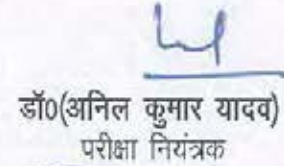 डॉ0(अनिल कुमार यादव)
परीक्षा नियंत्रक